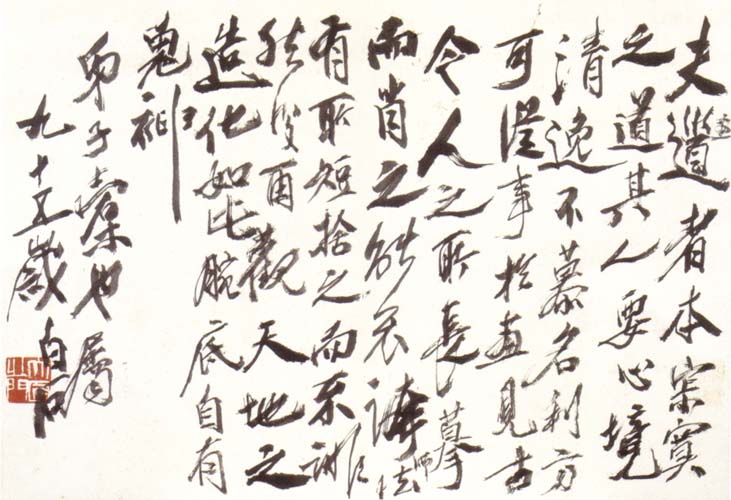 夫畫道者本寂寞
之道其人要心境
清逸不慕名利方
可從事於畫見古
今人之所長摹
而肖之能不誇師法
有所短捨之而不誹
然後再觀天地之
造化如此腕底自有
鬼神
弟子棠也屬
九十五歲白石